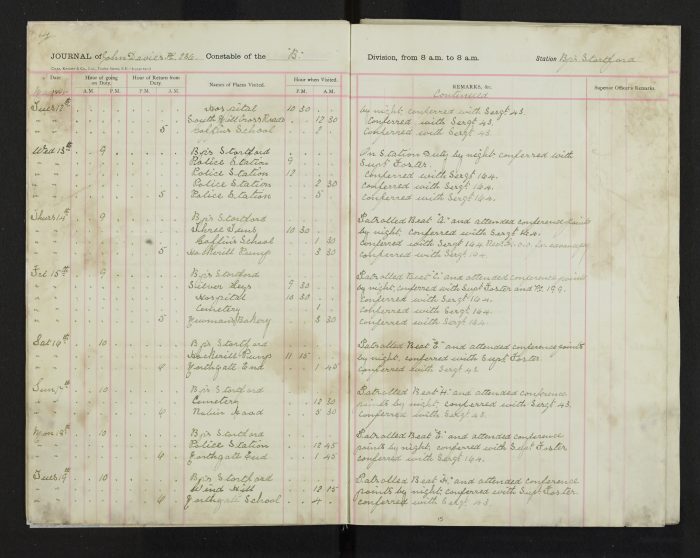 JOURNAL of John Davies Constable of the "B" Division, from 8 a.m. to 8 a.m. Station Bp's Stortford
Date Hour of going on Duty. Hour of Return from Duty Names of Places Visited. Hour when Visited. REMARKS, &c. Superior Officer's Remarks.
A.M. P.M. P.M. A.M. P.M. A.M. Continued
Tues 12th Hospital 10 30 by night, conferred with Sergt 43.
South Mill Cross Roads 12 30 Conferred with Sergt 43.
5 School 2 Conferred with Sergt 43.
Wed 13th 9 Bp's Stortford On Station Duty by night conferred with
Police Station 9 Supt Foster.
Police Station 12 Conferred with Sergt 164.
Police Station 2 30 Conferred with Sergt 164.
5 Police Station 5 Conferred with Sergt 164.
Thurs 14th 9 Bp's Stortford Patrolled Beat "A" and attended conference points
Three Tuns 10 30 by night, Conferred with Sergt 164.
School 1 30 Conferred with Sergt 164
5 Hockerill Pump 3 30 Conferred with Sergt 164.
Fri 15th 9 Bp's Stortford Patrolled Beat "C" and attended conference points
Silver Leys 9 30 by night, conferred with Supt Foster and Pc 199.
Hospital 10 30 Conferred with Sergt 164.
Cemetery 1 Conferred with Sergt 164.
5 Newmans Bakery 3 30 Conferred with Sergt 164.
Sat 16th 10 Bp's Stortford Patrolled Beat "E" and attended conference points
Hockerill Pump 11 15 by night, conferred with Supt Foster.
Northgate End 1 45 conferred with Sergt 43
Sun 10 Bp's Stortford Patrolled Beat "H" and attended conference
Cemetery 12 30 points by night, conferred with Sergt 43.
Road 5 30 Conferred with Sergt 43.
Mon 18th 10 Bp's Stortford Patrolled Beat "E" and attended conference
Police Station 12 45 points by night, conferred with Supt Foster
Northgate End 1 45 conferred with Sergt 164.
Tues 19th 10 Bp's Stortford Patrolled Beat and attended conference
Wind Hill 12 15 points by night, conferred with Supt Foster.
Northgate School 4 conferred with Sergt 43.
15